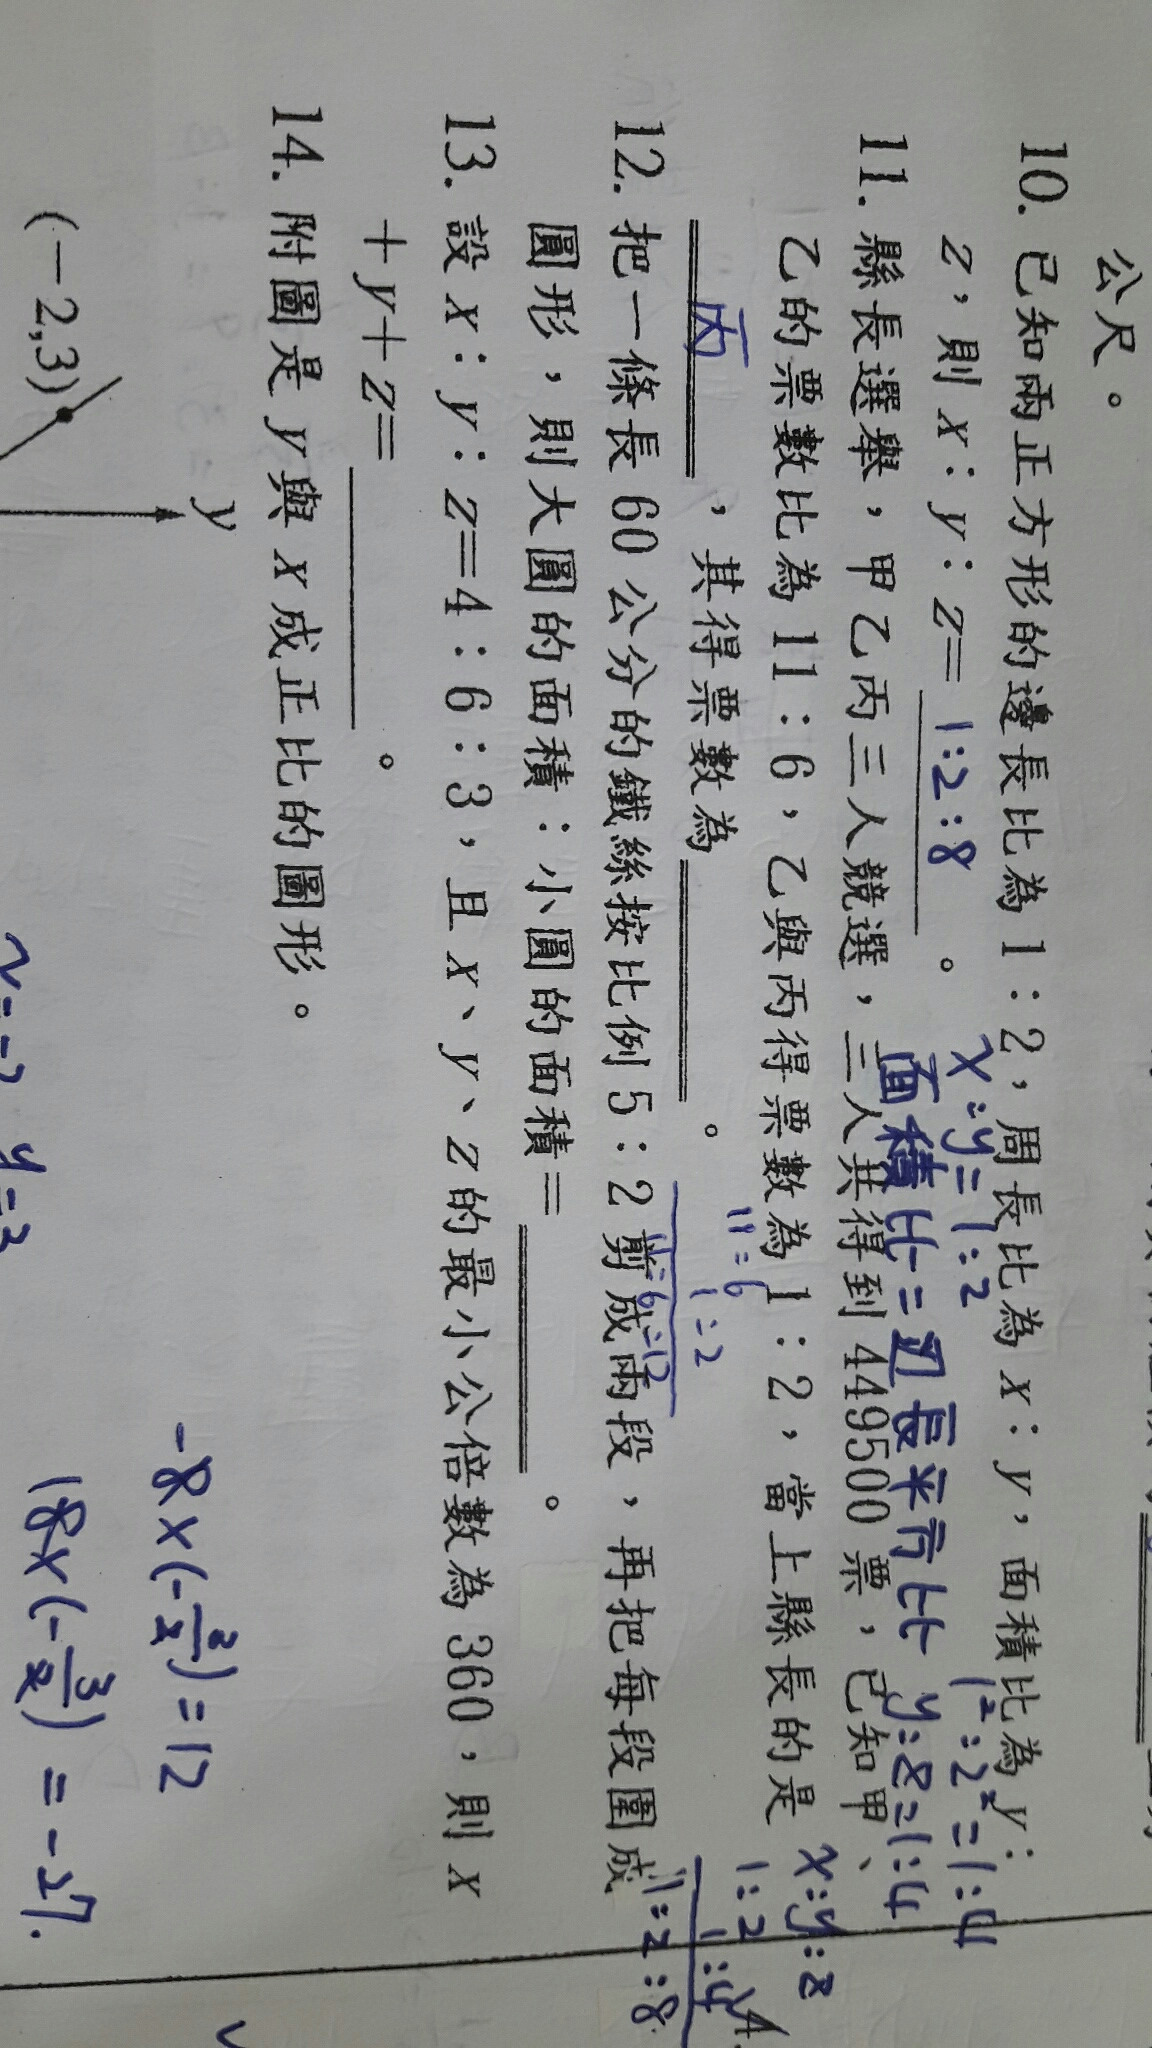 公尺。
10. 已知兩正方形的邊長比為 1:2,周長比為 x:y,面積比為 y:
z,則 x:y:z= 1:2:8 。
x:y=1:2
1²:2²=1:4
面積比=周長平方比 y:z=1:4
11. 縣長選舉,甲乙丙三人競選,三人共得到 449500 票,已知甲、
乙的票數比為 11:6,乙與丙得票數為 1:2,當上縣長的是
丙 ,其得票數為 。
11:6
1:2
11:6:12
x:y:z
1:2
1:4
1:2:8
12. 把一條長 60 公分的鐵絲按比例 5:2 剪成兩段,再把每段圍成
圓形,則大圓的面積:小圓的面積= 。
13. 設 x:y:z=4:6:3,且 x、y、z 的最小公倍數為 360,則 x
+y+z= 。
14. 附圖是 y 與 x 成正比的圖形。
y
(-2,3)
-8×(-3/2)=12
18×(-3/2)=-27.
x=-2 y=3